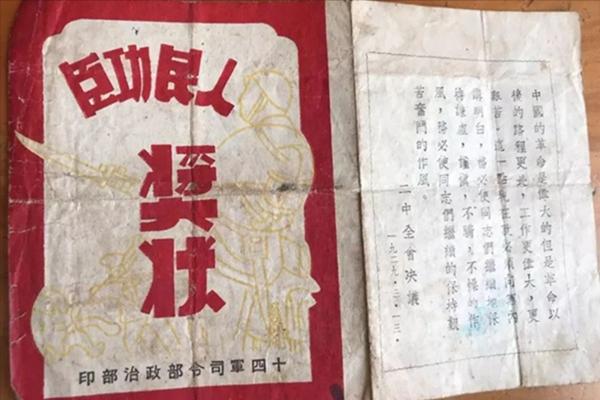 人民功臣
奬狀
十四軍司令部政治部印
中國的革命是偉大的但是革命以
後的路程更長,工作更偉大,更
艱苦,這一點現在就必須向黨內
講明白,務必使同志們繼續地保
持謙虛,謹慎,不驕,不躁的作
風,務必使同志們繼續的保持艱
苦奮鬥的作風。
二中全會決議